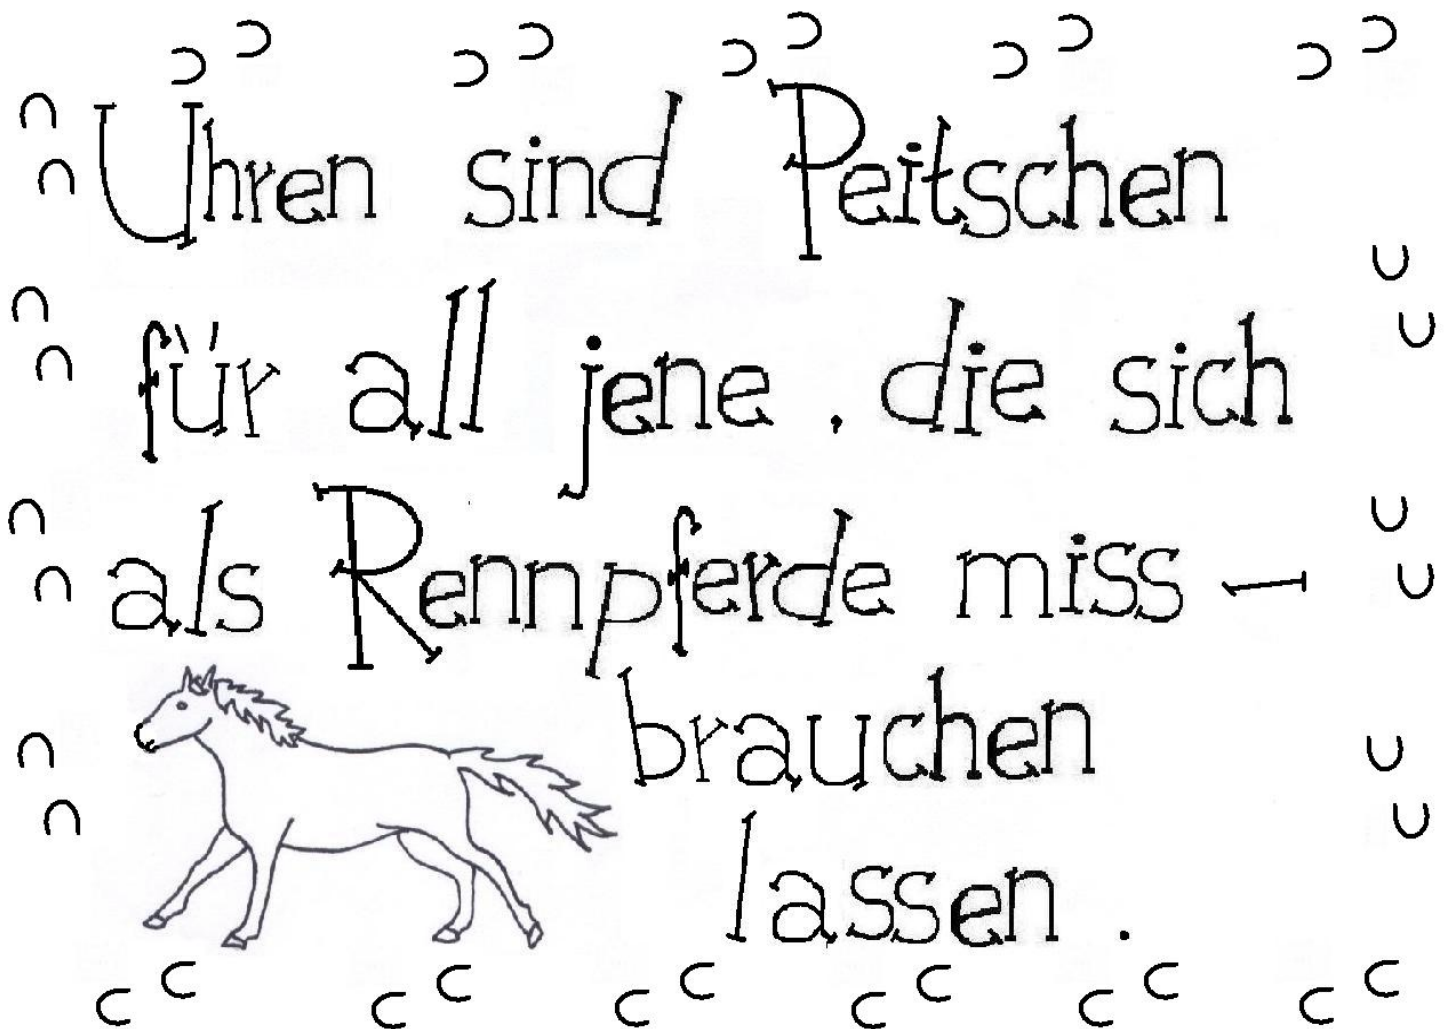 Uhren sind Peitschen
für all jene , die sich
als Rennpferde miss-
brauchen
lassen .